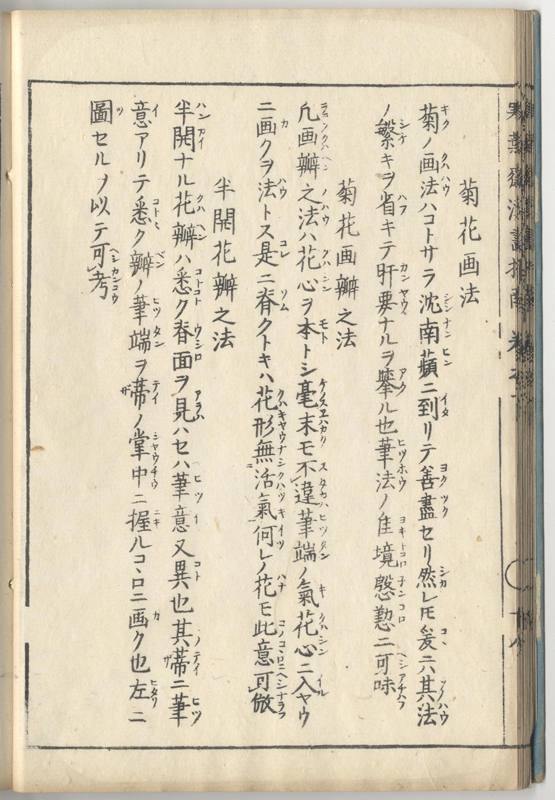 菊花画法
菊ノ画法ハコトサラ沈南蘋ニ到リテ善盡セリ然レ𪜈爰ニハ其法
ノ繁キヲ省キテ肝要ナルヲ擧ル也筆法ノ佳境慇懃ニ可味
菊花画瓣之法
凢画瓣之法ハ花心ヲ本トシ毫末モ不違筆端ノ氣花心ニ入ヤウ
ニ画クヲ法トス是ニ脊クトキハ花形無活氣何レノ花モ此意可倣
半開花瓣之法
半開ナル花瓣ハ悉ク脊面ヲ見ハセハ筆意又異也其蒂ニ筆
意アリテ悉ク瓣ノ筆端ヲ蒂ノ掌中ニ握ルコヽロニ画ク也左ニ
圖セルヲ以テ可考